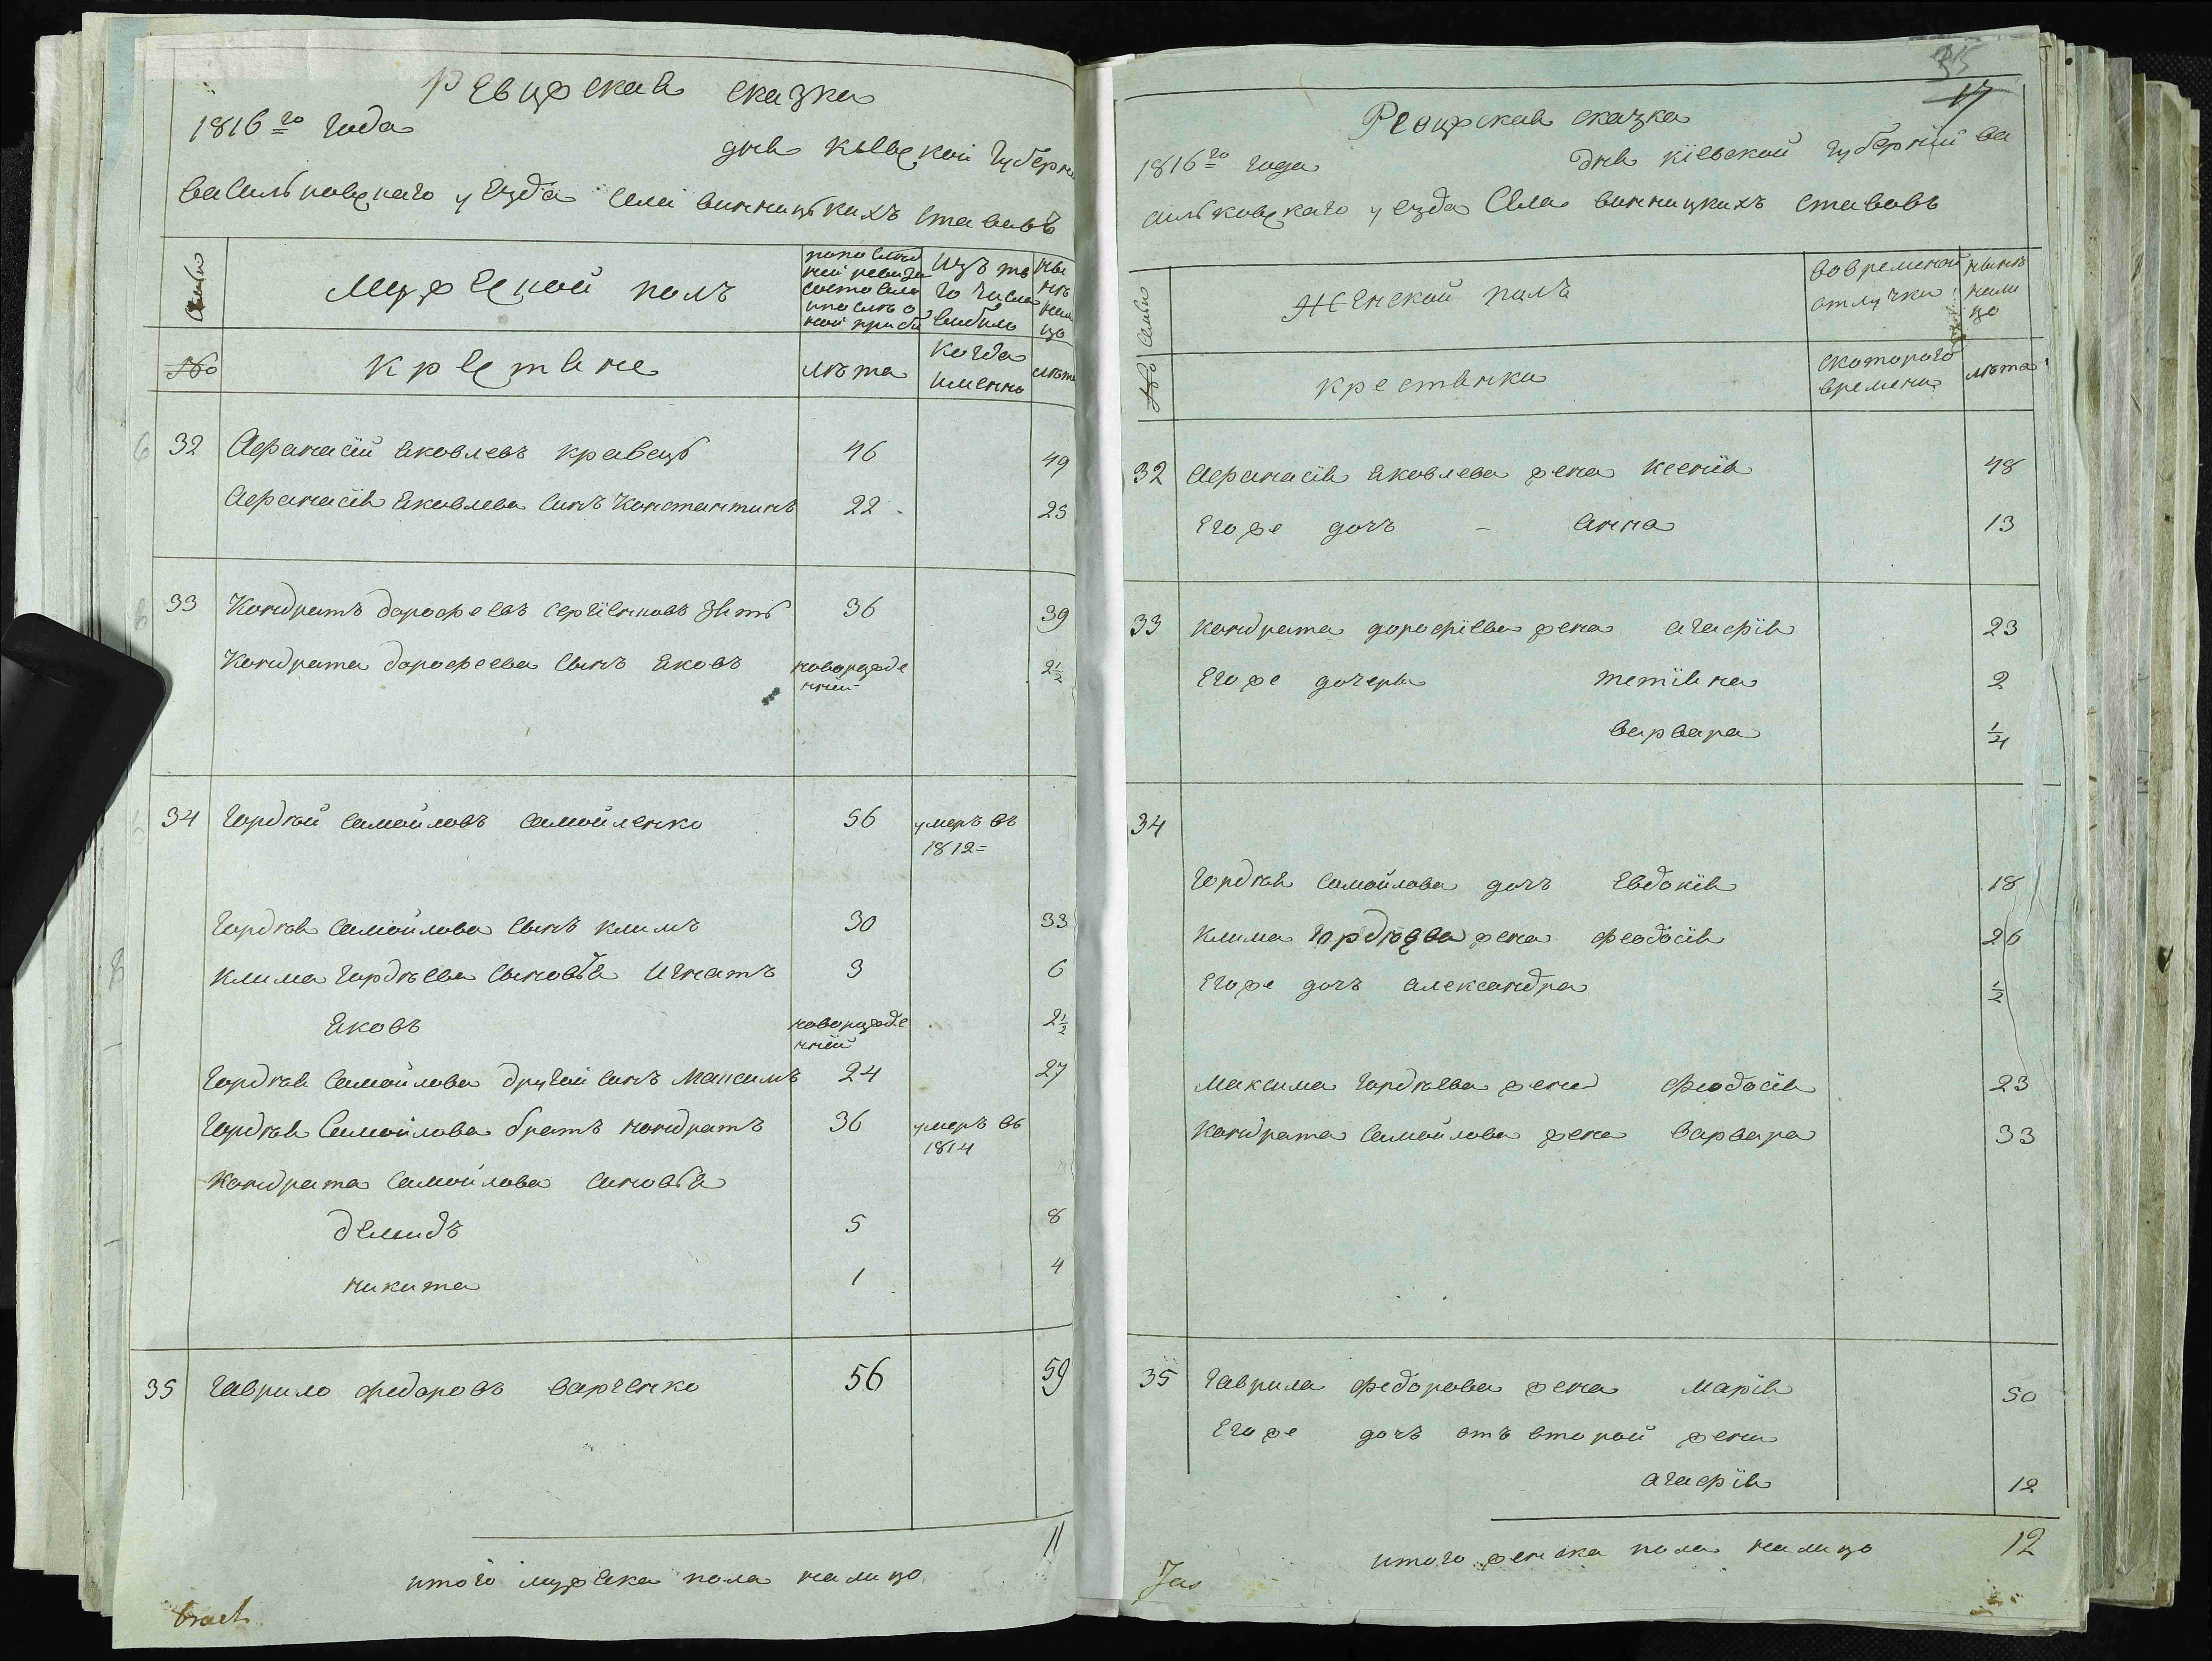 Ревижская сказка
1816го года
дня киевской губерни
васильковскаго уезда села винницькихъ ставовъ
Семьи
Мужеской полъ
по последней ревизии состояло и после оной прибыло
изъ того числа выбыло
ныне на лицо
№
крестяне
лѣта
когда именно
лѣта
32 Афанасiй яковлевъ кравецъ 46 49
Афанасiя яковлева синъ Константинъ 22 25
33 Кондратъ дорофеевъ сергiенковъ зять 36 39
Кондрата дорофеева сынъ яковъ новорожде 2½
ннiй
34 гордѣй самойловъ самойленко 56 умеръ въ
1812
гордѣя самойлова сынъ климъ 30 33
клима гордѣева сыновья игнатъ 3 6
яковъ новорожде 2½
ннiй
гордѣя самойлова другой синъ максимъ 24 27
гордѣя самойлова братъ кондратъ 36 умеръ въ
1814
кондрата самойлова синовья
демидъ 5 8
никита 1 4
35 гаврило федоровъ варченко 56 59
11
итого мужеска пола налицо
35
17
Ревижская сказка
1816го года
дня кiевской губернiй ва
сильковскаго уезда села винницкихъ ставовъ
№ Семьи
Женской полъ
во временной отлучки
нынѣ налицо
крестянки
скоторого времени
лѣта
32 Афанасiя яковлева жена ксенiя 48
Егоже дочъ – анна 13
33 кондрата дорофiева жена агафiя 23
Егоже дочеры тетiяна 2
варвара ½
34
гордѣя самойлова дочъ Евдокiя 18
клима гордѣева жена феодосiя 26
Егоже дочъ александра ½
максима гордѣева жена феодосiя 23
кондрата самойлова жена варвара 33
35 гаврила федорова жена марiя 50
Егоже дочъ отъ второй жени
агафiя 12
итого женска пола налицо 12